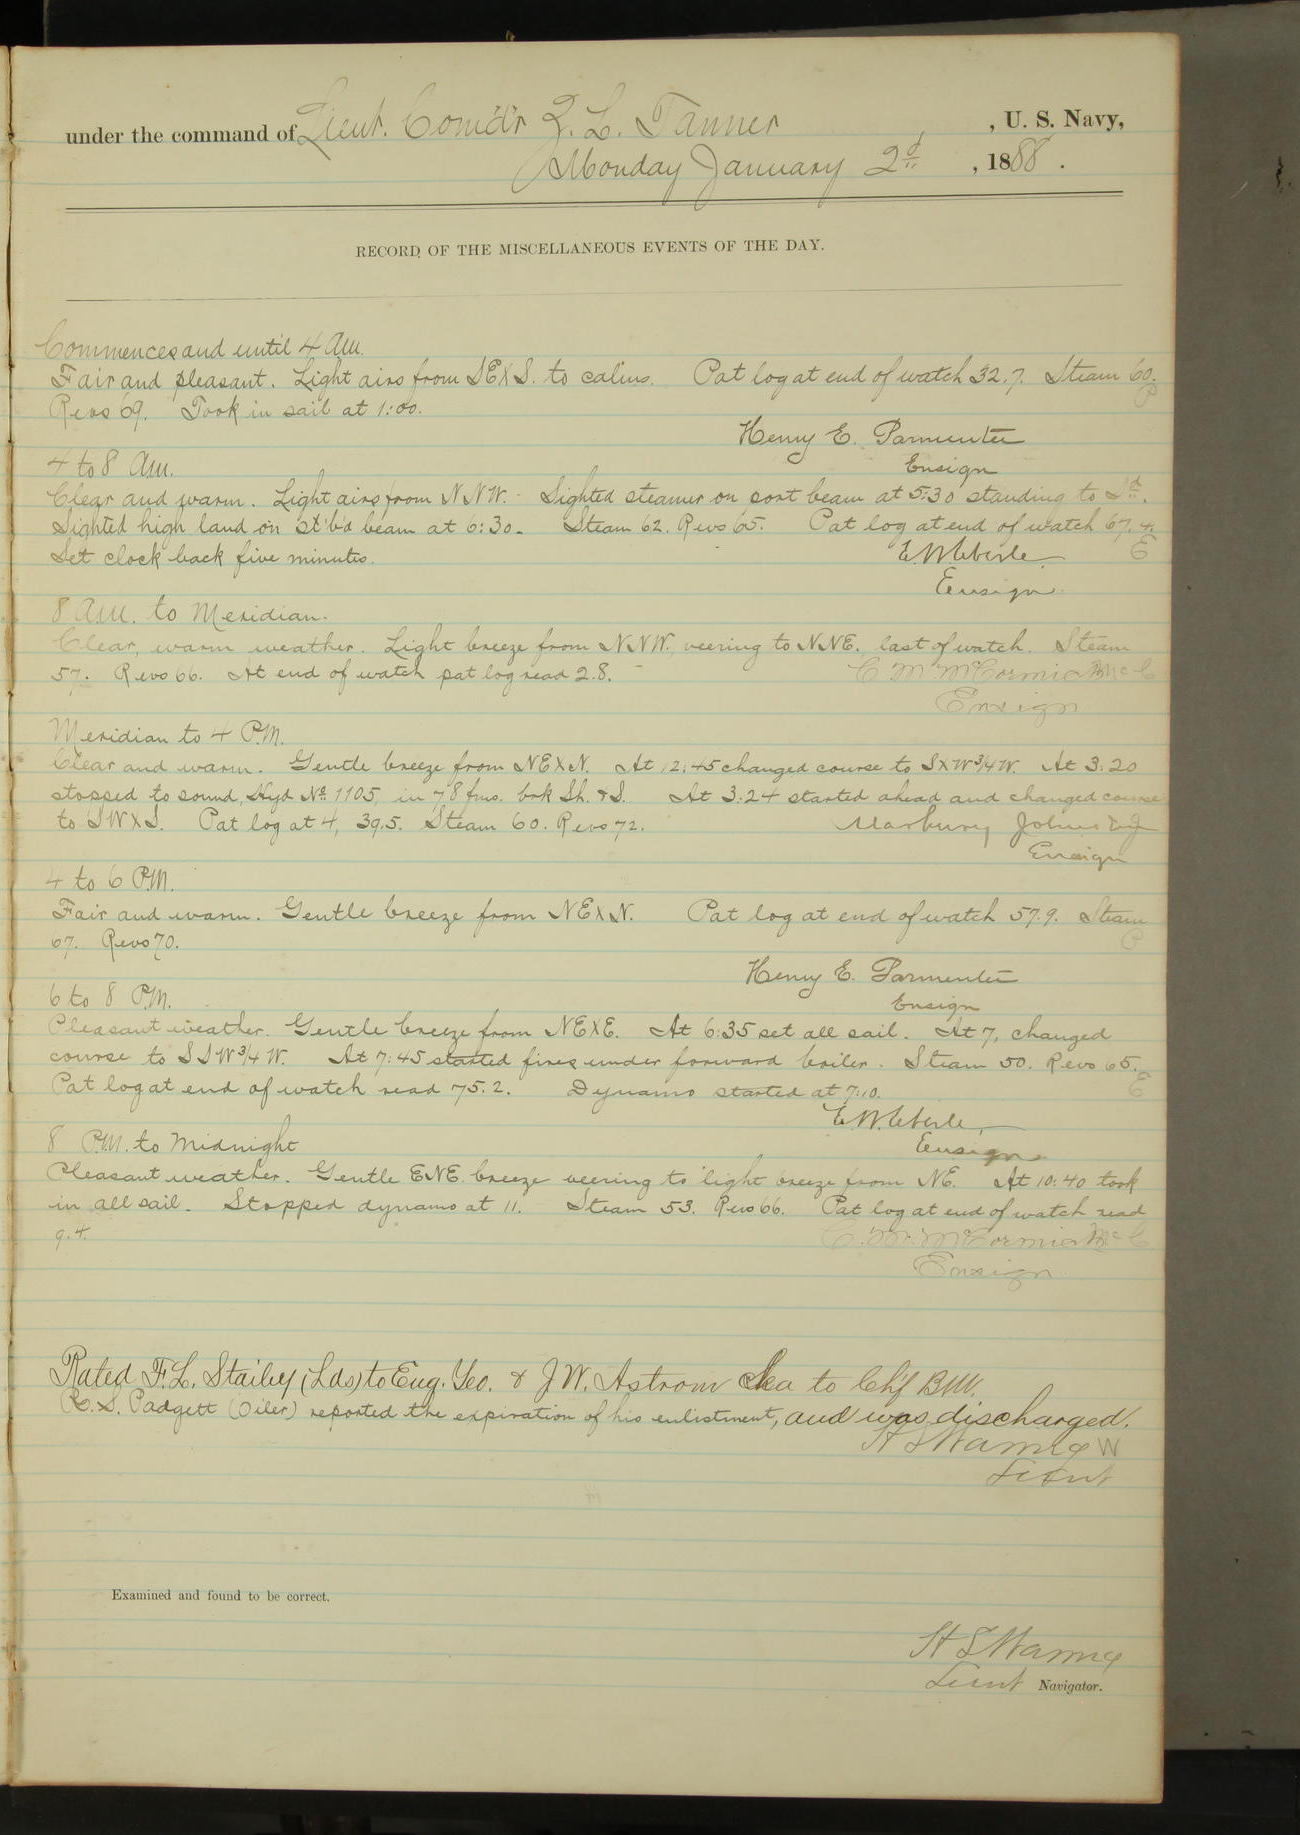 under the command of Lieut. Comd'r Z. L. Tanner, U. S. Navy,
Monday January 2d, 1888.
RECORD OF THE MISCELLANEOUS EVENTS OF THE DAY.
Commences and until 4 A.M.
Fair and pleasant. Light airs from SEXS. to calms. Pat log at end of watch 32.7. Steam 60.
Revs 69. Took in sail at 1:00. P
Henry E. Parmenter
Ensign
4 to 8 A.M.
Clear and warm. Light airs from NNW. Sighted steamer on port beam at 5:30 standing to Sd.
Sighted high land on st'b'd beam at 6:30. Steam 62. Revs 65. Pat log at end of watch 67.4.
Set clock back five minutes. E.W. Eberle. E
Ensign.
8 A.M. to Meridian.
Clear, warm weather. Light breeze from NNW., veering to NNE. last of watch. Steam
57. Revs 66. At end of watch pat log read 2.8. C. M. McCormick McC
Ensign
Meridian to 4 P.M.
Clear and warm. Gentle breeze from NEXN. At 12:45 changed course to SXW3/4W. At 3:20
stopped to sound, Hyd No. 1105, in 78 fms. brk Sh. & S. At 3:24 started ahead and changed course
to SWXS. Pat log at 4, 39.5. Steam 60. Revs 72. Marbury Johnston J
Ensign
4 to 6 P.M.
Fair and warm. Gentle breeze from NEXN. Pat log at end of watch 57.9. Steam
67. Revs 70. P
Henry E. Parmenter
Ensign
6 to 8 P.M.
Pleasant weather. Gentle breeze from NEXE. At 6:35 set all sail. At 7, changed
course to SSW3/4W. At 7:45 started fires under forward boiler. Steam 50. Revs 65.
Pat log at end of watch read 75.2. Dynamo started at 7:10. E
E.W. Eberle,
Ensign.
8 P.M. to Midnight
Pleasant weather. Gentle ENE. breeze veering to light breeze from NE. At 10:40 took
in all sail. Stopped dynamo at 11. Steam 53. Revs 66. Pat log at end of watch read
9.4. C. M. McCormick McC
Ensign
Rated F. L. Stailey (Lds) to Eng. Yeo. & J W. Astrom Sea to Ch'f BM.
R. S. Padgett (Oiler) reported the expiration of his enlistment, and was discharged.
H S Waring W
Lieut
Examined and found to be correct.
H S Waring
Lieut Navigator.